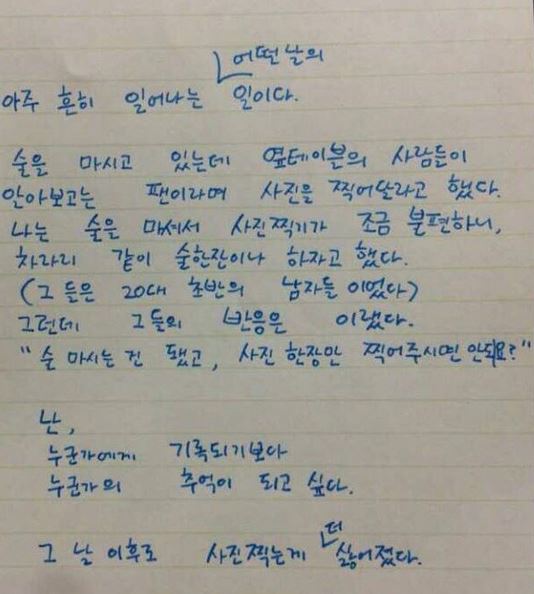 어떤 날의
아주 흔히 일어나는 일이다.
술을 마시고 있는데 옆테이블의 사람들이
알아보고는 팬이라며 사진을 찍어달라고 했다.
나는 술을 마셔서 사진찍기가 조금 불편하니,
차라리 같이 술한잔이나 하자고 했다.
(그 들은 20대 초반의 남자들 이었다)
그런데 그들의 반응은 이랬다.
"술 마시는 건 됐고, 사진 한장만 찍어주시면 안되요?"
난,
누군가에게 기록되기보다
누군가의 추억이 되고 싶다.
더
그 날 이후로 사진찍는게 싫어졌다.